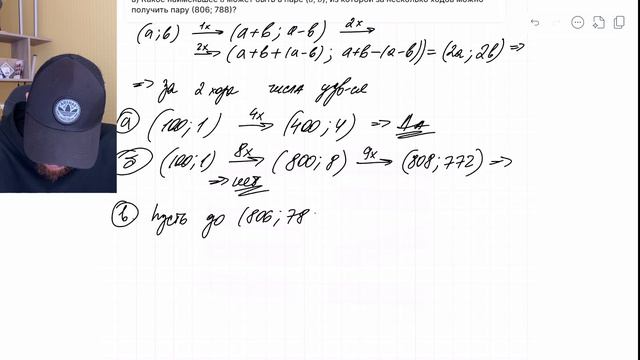 в) Какое наименьшее a может быть в паре (a; b), из которой за несколько ходов можно
получить пару (806; 788)?
(a;b) 1x→ (a+b; a-b) 2x→
2x→ (a+b+(a-b); a+b-(a-b)) = (2a; 2b) ⇒
⇒ за 2 хода числа удв-ся
а) (100;1) 4x→ (400;4) ⇒ Да
б) (100;1) 8x→ (800;8) 9x→ (808;772) ⇒
⇒ нет
в) Пусть до (806;78